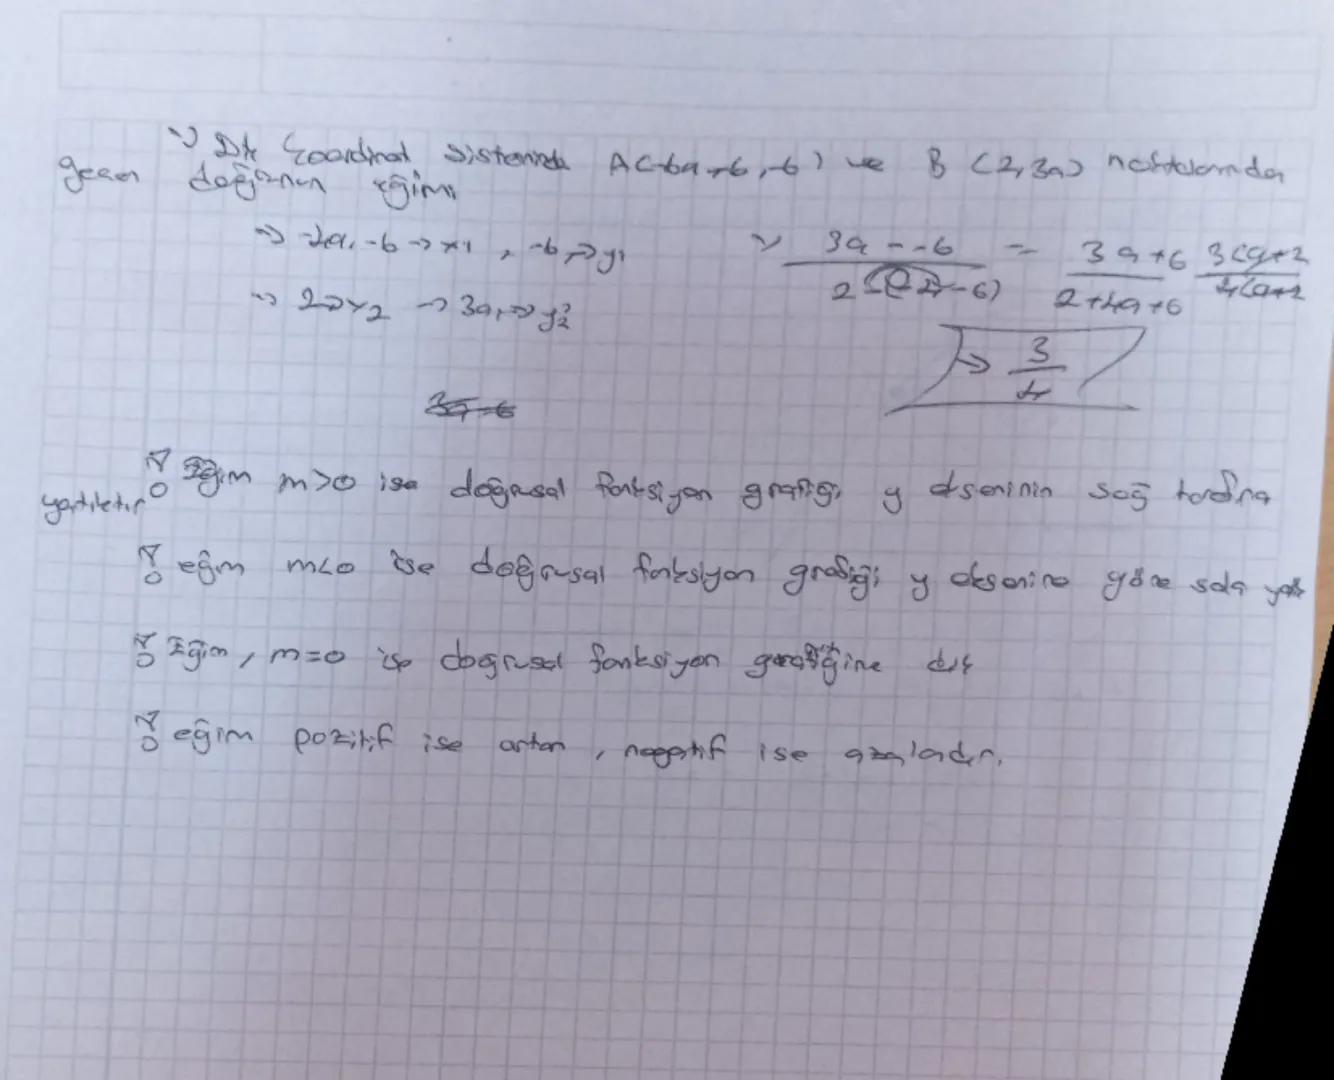 Dik Koordinat sisteminde A(-4a-6,-6) ve B (2,3a) noktalarından
geçen doğrunun eğimi
⇒ -4a, -6 → x1, -6 ⇒ y1
3a--6 / 2-( -6) = 3a+6 / 2+4a+6 3(a+2 / 4(a+2
⇒ 2⇒x2 → 3a, ⇒ y2
⇒ 3/4
Eğim m>0 ise doğrusal fonksiyon grafiği y ekseninin sağ tarafına
yatıktır
eğim m<0 ise doğrusal fonksiyon grafiği y eksenine göre sola
Eğim, m=0 ise doğrusal fonksiyon dik
eğim pozitif ise artan, negatif ise azalandır.